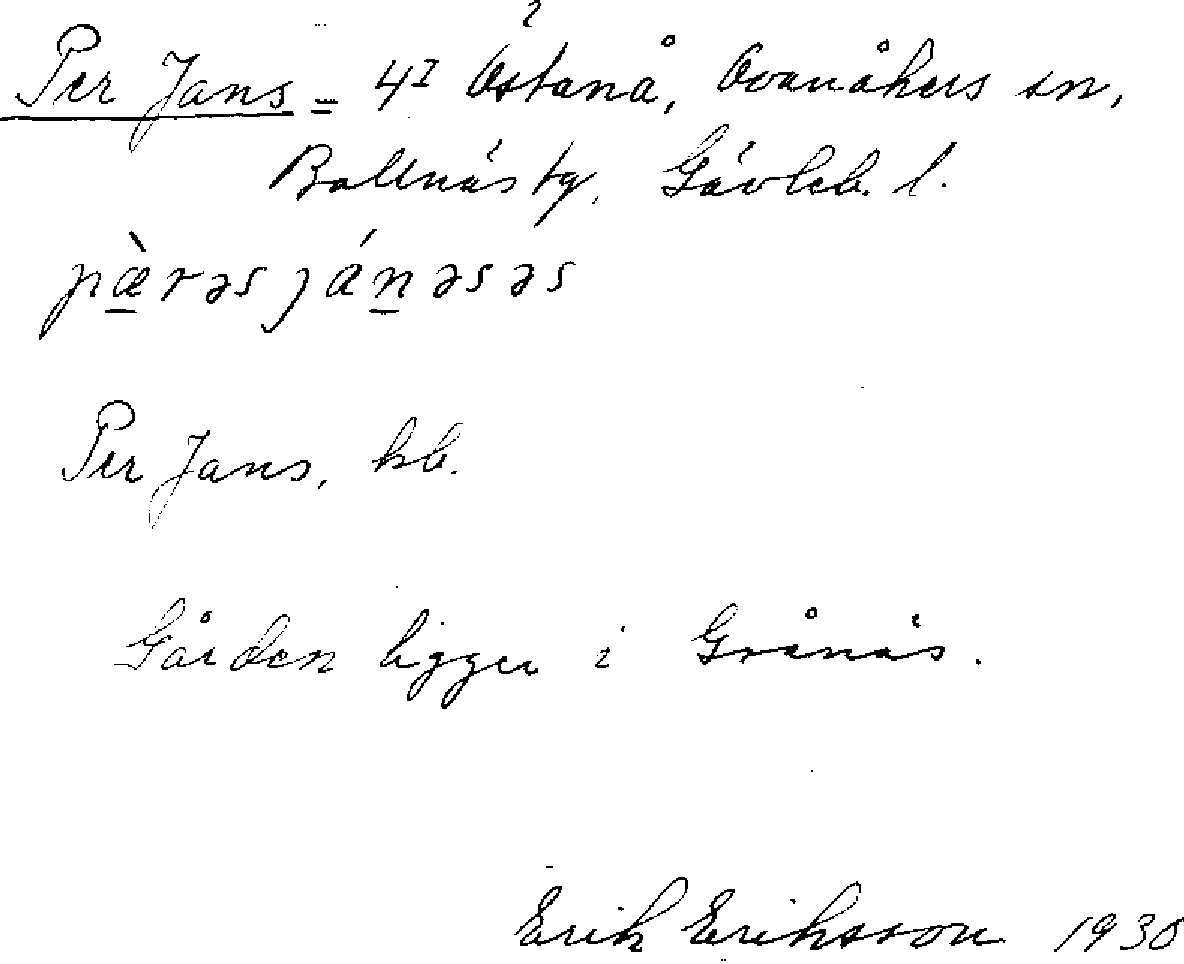 Per Jans = 4^I Östanå, Ovanåkers sn,
Bollnäs tg, Gävleb. l.
pæ̀rəs jánəsəs
Per Jans, kb.
Gården ligger i Grånäs.
Erik Eriksson 1930